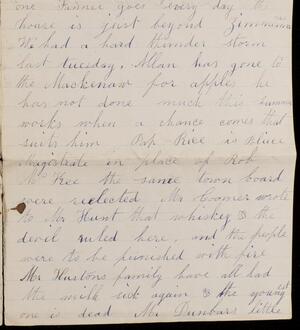 one Fannie goes every day the
house is just beyond Zimmermans
We had a hard thunder storm
last tuesday, Allan has gone to
the Mackenaw for apples he
has not done much this summer
works when a chance comes that
suits him. Pap Rice is
Magestrate in place of Rob
McKee the same town board
were reelected Mr Coomer wrote
to Mr Hunt that whiskey & the
devil ruled here, and the people
were to be punished with fire
Mr Hustons family have all had
the milk sick again & the youngest
one is dead Mr Dunbars little